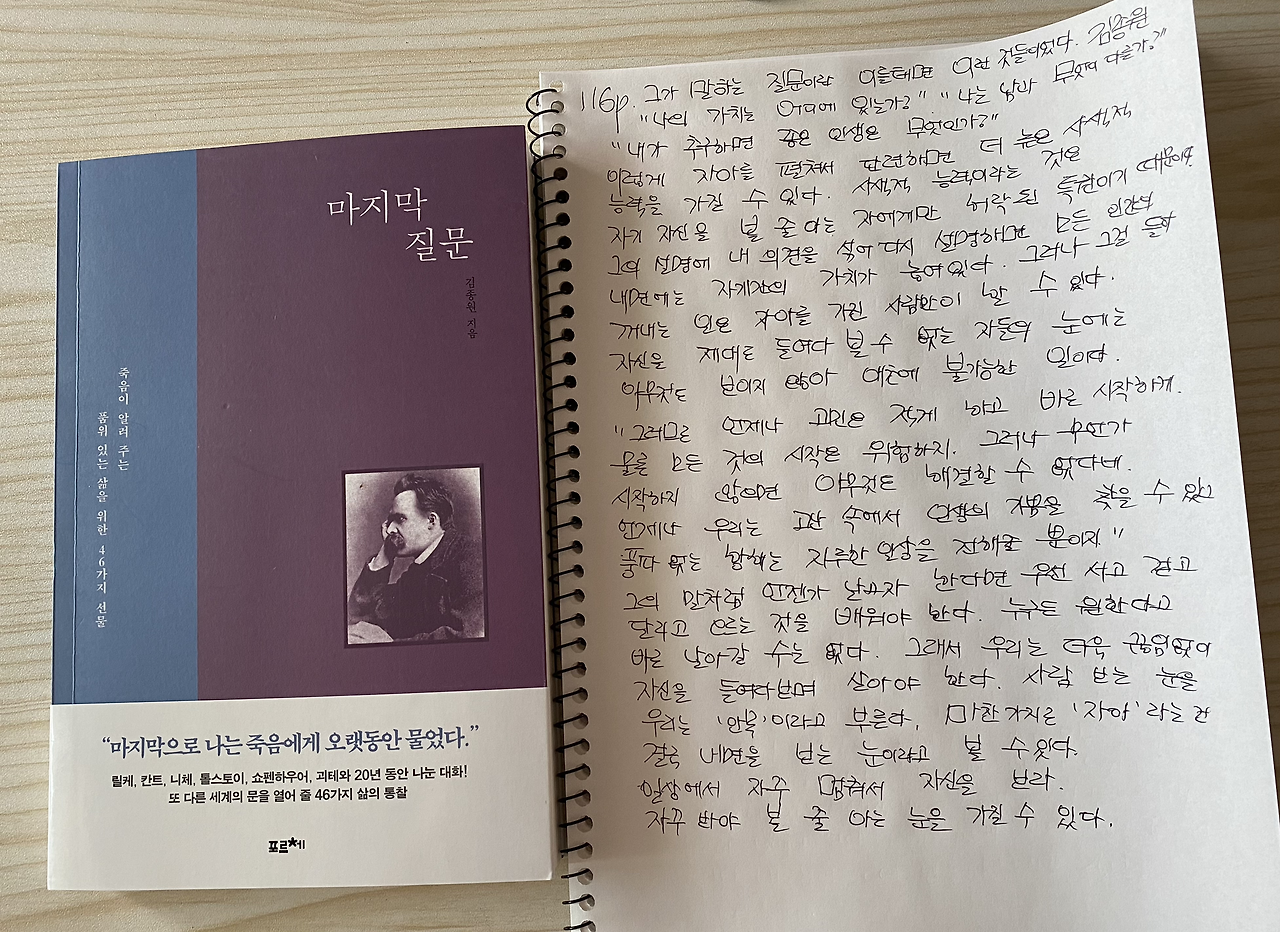 마지막
질문
김종원 지음
죽음이 알려 주는
품위 있는 삶을 위한 46가지 선물
“마지막으로 나는 죽음에게 오랫동안 물었다.”
릴케, 칸트, 니체, 톨스토이, 쇼펜하우어, 괴테와 20년 동안 나눈 대화!
또 다른 세계의 문을 열어 줄 46가지 삶의 통찰
포르체
116p. 그가 말하는 질문이란 이를테면 이런 것들이었다. 김종원
"나의 가치는 어디에 있는가?" "나는 남과 무엇이 다른가?"
"내가 추구하면 좋은 인생은 무엇인가?"
이렇게 자아를 펼쳐서 단련하면 더 높은 사색적
능력을 가질 수 있다. 사색적 능력이라는 것은
자기 자신을 볼 줄 아는 자에게만 허락된 특권이기 때문이다.
그의 설명에 내 의견을 섞어 다시 설명하면 모든 인간의
내면에는 자기만의 가치가 놓여있다. 그러나 그걸 들어
꺼내는 일은 자아를 가진 사람만이 할 수 있다.
자신을 제대로 들여다 볼 수 없는 자들의 눈에는
아무것도 보이지 않아 애초에 불가능한 일이다.
"그러므로 언제나 고민은 적게 하고 바로 시작하게.
물론 모든 것의 시작은 위험하지. 그러나 무언가
시작하지 않으면 아무것도 해결할 수 없다네.
언제나 우리는 고난 속에서 인생의 기쁨을 찾을 수 있고
풍파 없는 항해는 지루한 일상을 전해줄 뿐이지"
그의 말처럼 언젠가 날고자 한다면 우선 서고 걷고
달리고 오르는 것을 배워야 한다. 누구든 원한다고
바로 날아갈 수는 없다. 그래서 우리는 더욱 끊임없이
자신을 들여다보며 살아야 한다. 사람 보는 눈을
우리는 '안목'이라고 부른다. 마찬가지로 '자아'라는 건
결국 내면을 보는 눈이라고 볼 수 있다.
일상에서 자주 멈춰서 자신을 보라.
자꾸 봐야 볼 줄 아는 눈을 가질 수 있다.